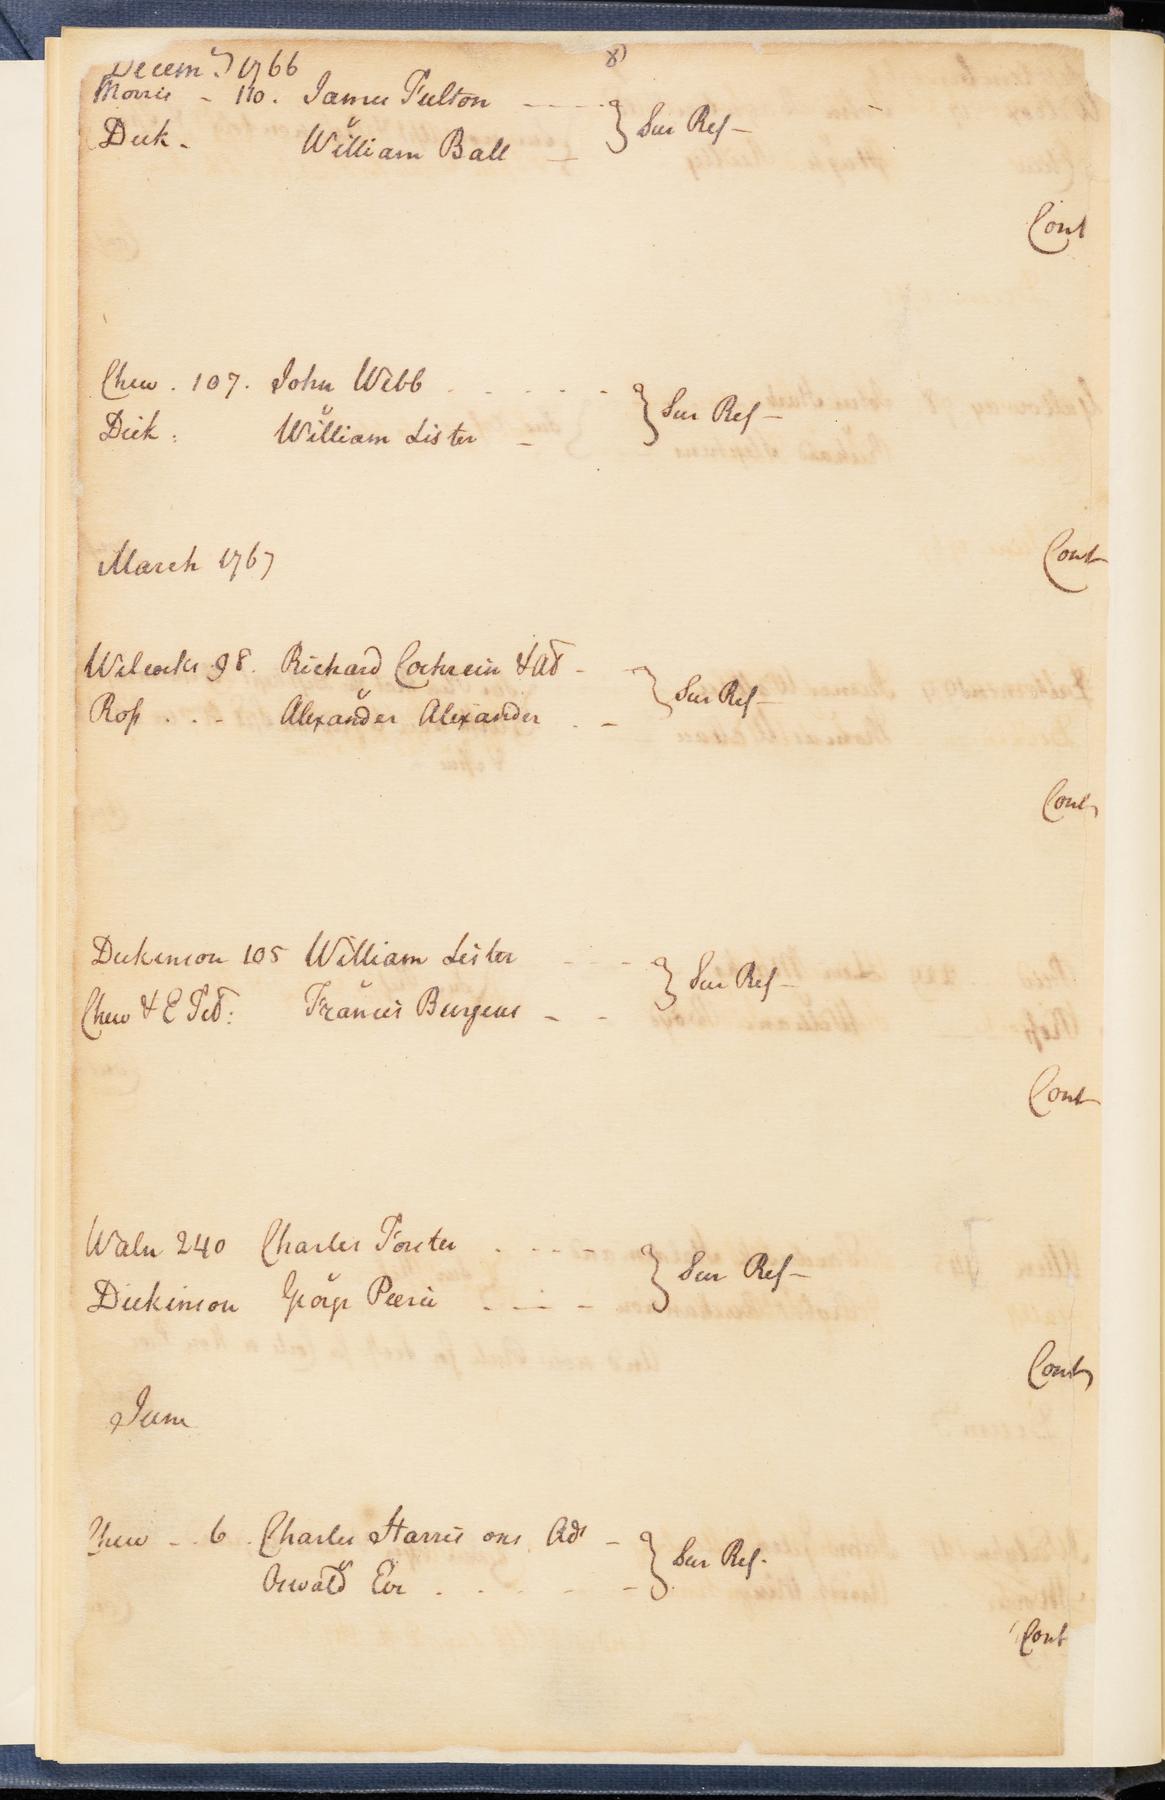 Decemr 1766
8)
Morris - 110. James Fulton - - - - } Sur Ref -
Dick - v William Ball -
Cont
Chew . 107. John Webb - - - - - } Sur Ref -
Dick : v William Lister -
March 1767
Cont
Wilcocks 98. Richard Cochrein & Ad - - } Sur Ref -
Ross . . - v Alexander Alexander . -
Cont
Dickinson 105 William Lister - - - } Sur Ref -
Chew & E Ted : v Francis Burgeus - -
Cont
Waln 240 Charles Forster . - - - } Sur Ref -
Dickinson v George - - -
Cont
June
Chew - 6 . Charles Harris ons Ads - } Sur Ref -
v Oswald Eve . . - - -
Cont